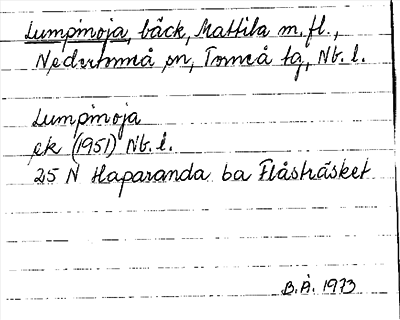 Lumpinoja, bäck, Mattila m. fl.,
Nedertorneå sn, Torneå tg, Nb. l.
Lumpinoja
ek (1951) Nb. l.
25 N Haparanda ba Flåsträsket
B.Å. 1973